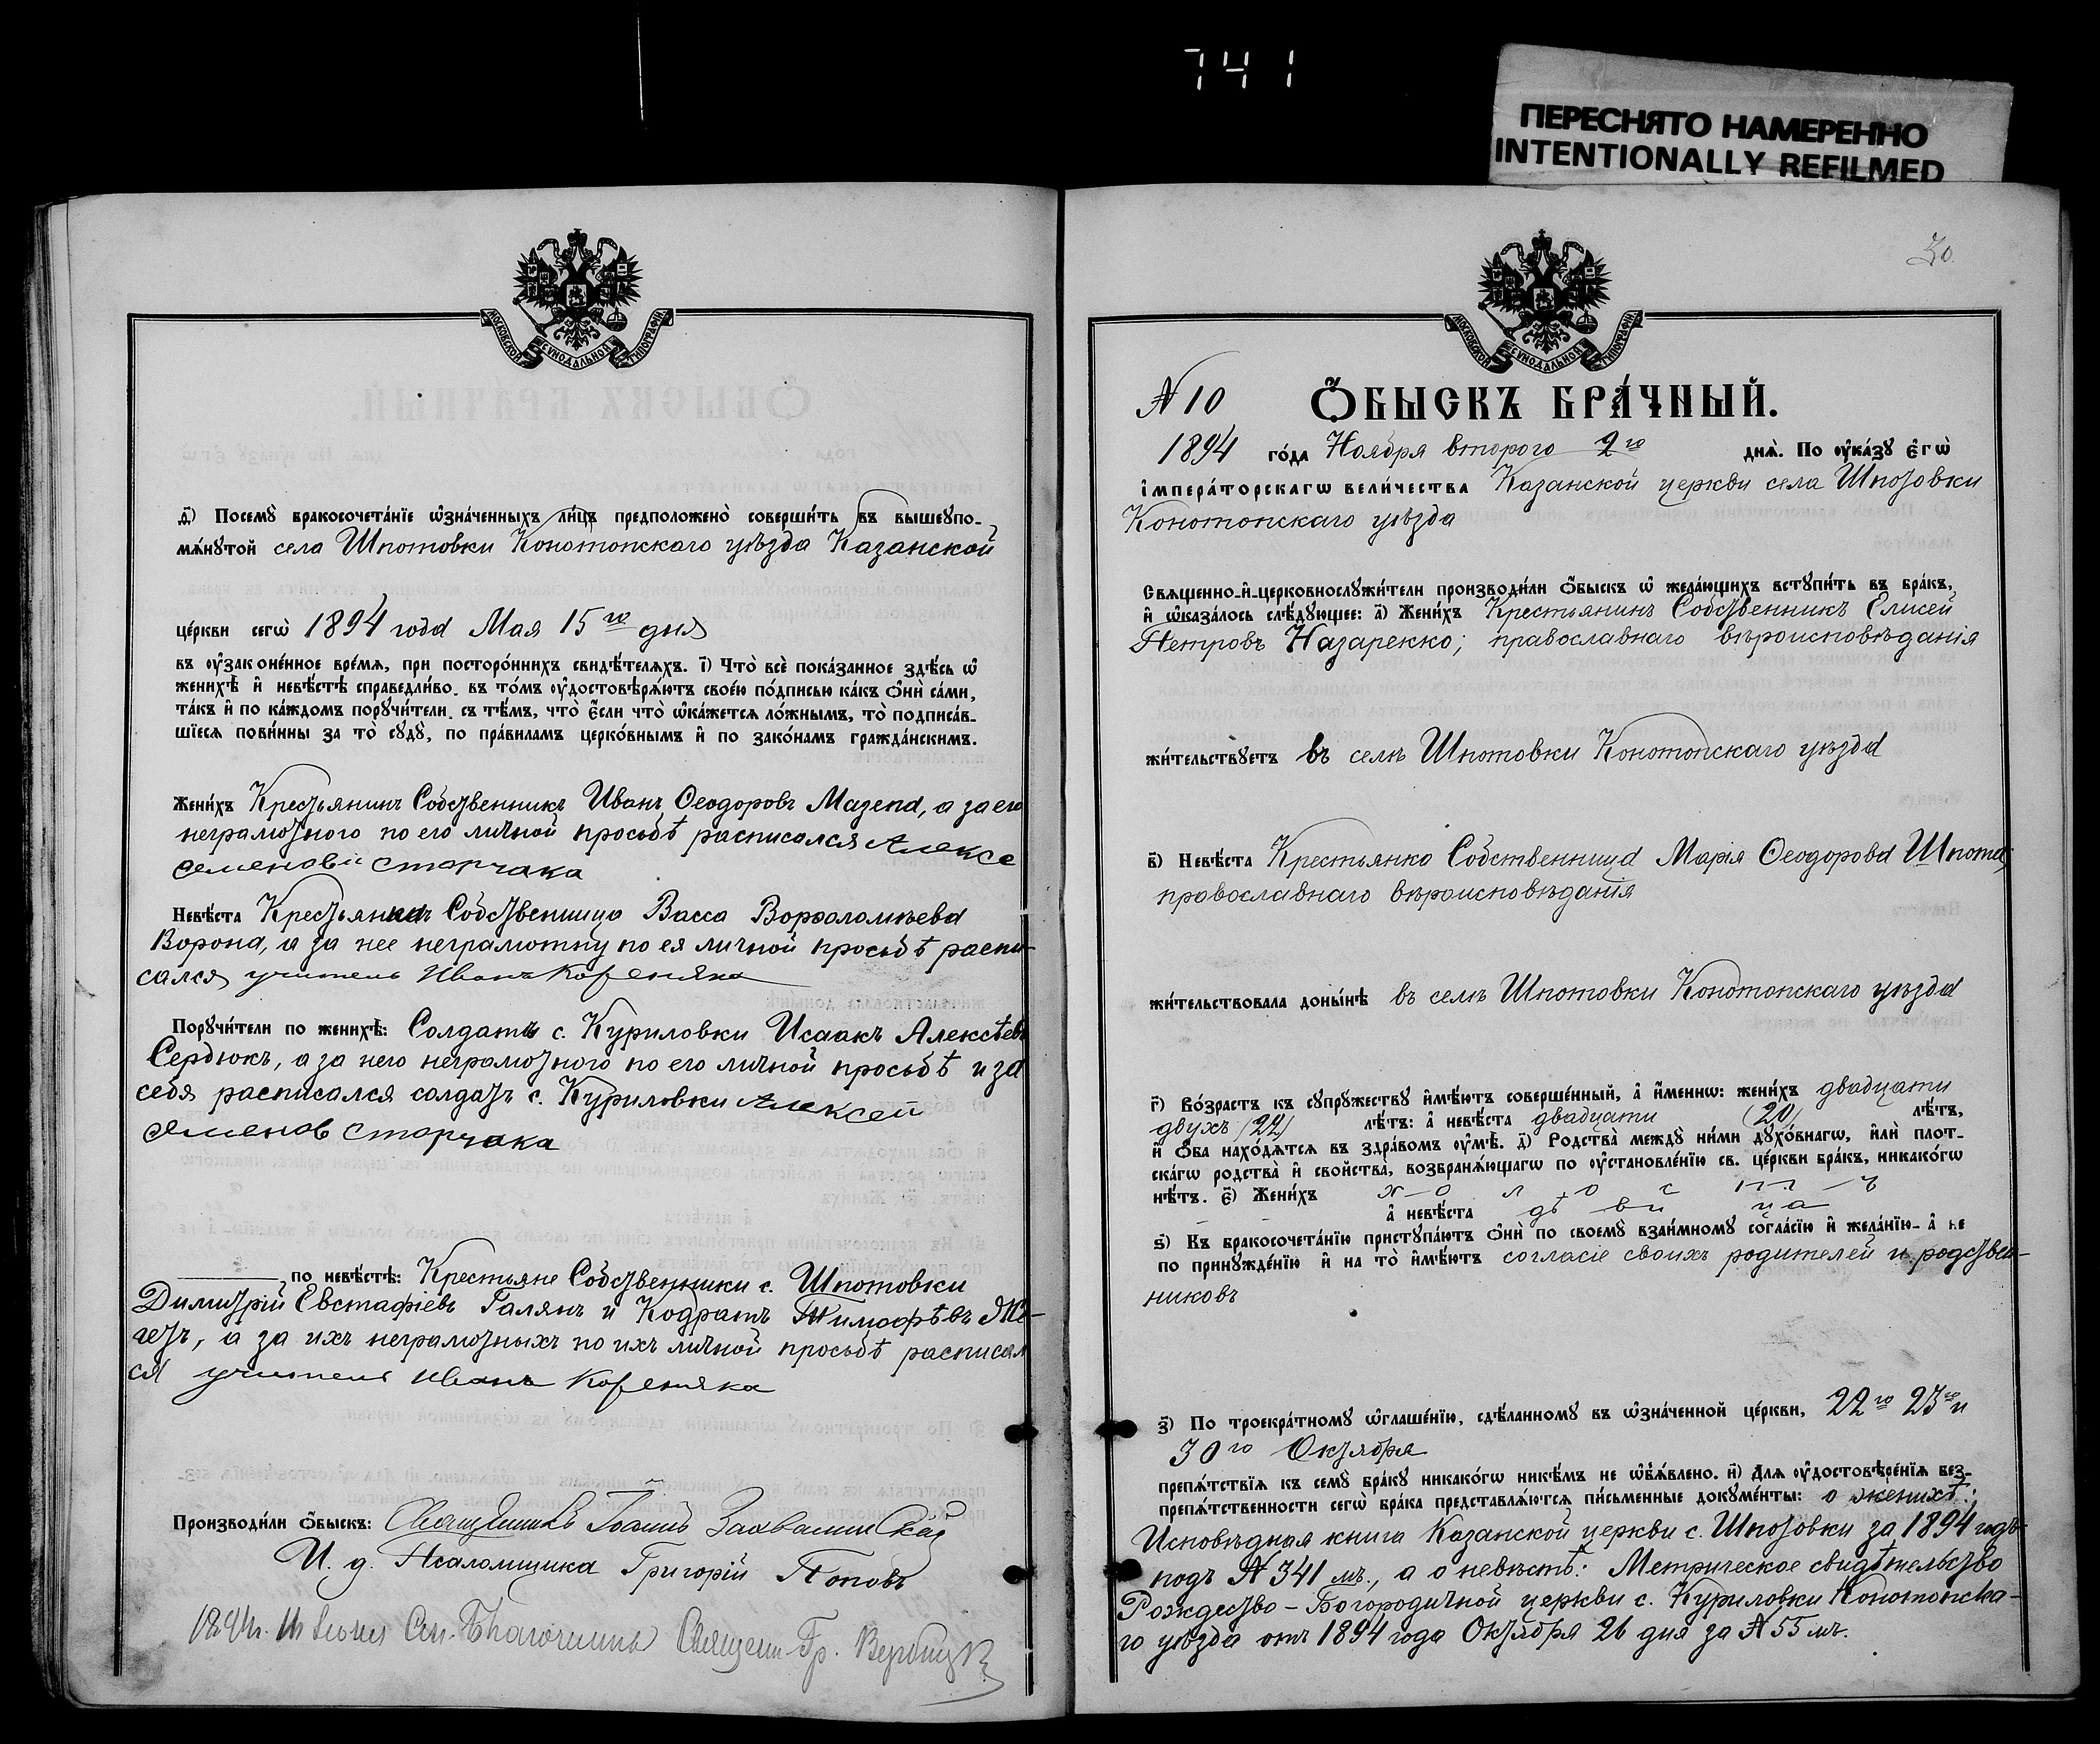 741
ПЕРЕСНЯТО НАМЕРЕННО
INTENTIONALLY REFILMED
МОСКОВСКОЙ СѴНОДАЛЬНОЙ ТИПОГРАФІИ
д҃і) Посемꙋ̀ бракосочета́нїе ѡ҆зна́ченныхъ ли́цъ предположено̀ соверши́ть въ вышеꙋпо-
мѧ́нꙋтой села Шпотовки Конотопскаго уѣзда Казанской
це́ркви сегѡ̀ 1894 года Мая 15го дня
въ ᲂу҆зак оне́нное вре́мѧ, при посторо́ннихъ свидѣ́телѧхъ. і҃) Что̀ всѐ пока́занное здѣ́сь ѡ҆
женихѣ̀ и҆ невѣ́стѣ справедли́во. въ то́мъ ᲂу҆достовѣрѧ́ютъ свое́ю по́дписью ка́къ ѻ҆нѝ са́ми,
та́къ и҆ по ка́ждомъ порꙋчи́тели. съ тѣ́мъ, что̀ є҆́сли что̀ ѡ҆ка́жетсѧ ло́жнымъ, то̀ подписа́в-
шїесѧ пови́нны за то̀ сꙋдꙋ̀, по пра́виламъ церко́внымъ и҆ по зако́намъ гражда́нскимъ.
Жени́хъ Крестьянинъ Собственникъ Иванъ Ѳеодоровъ Мазепа, а за его
неграмотного по его личной просьбѣ расписался Алексе
Семеновъ Сторчака
Невѣ́ста Собственница Васса Ворфоломѣева
Ворона, а за нее неграмотну по ея личной просьбѣ распи-
сался учитель Иванъ Кореняка
Порꙋчи́тели по женихѣ̀: Солдаты с. Куриловки Исаакъ Алексѣевъ
Сердюкъ, а за него неграмотного по его личной просьбѣ и за
себя расписался солдатъ с. Куриловки Алексей
Семенов Сторчака
по невѣ́стѣ: Крестьяне Собственники с. Шпотовки
Димитрій Евстафіевъ Галянъ и Кодратъ Тимофѣвъ
а за ихъ неграмотныхъ по ихъ личной просьбѣ расписал
ся учитель Иванъ Кореняка
Производи́ли ѻ҆́быскъ: Священникъ Іоаннъ
И. д. Псаломщика Григорій Поповъ
Благочинный Священ. Гр.
30
МОСКОВСКОЙ СѴНОДАЛЬНОЙ ТИПОГРАФІИ
N 10 Ѻ҆́БЫСКЪ БРА́ЧНЫЙ.
1894 го́да Ноября второго 2го днѧ̀. По ᲂу҆ка́зꙋ є҆гѡ̀
і҆мпера́торскагѡ вели́чества Казанской церкви села Шпотовки
Конотопскаго уѣзда
Свѧще́нно-и҆-церковнослꙋжи́тели производи́ли ѻ҆́быскъ ѡ҆ жела́ющихъ встꙋпи́ть въ бра́къ,
и҆ ѡ҆каза́лось слѣ́дꙋющее: а҃) Жени́хъ Крестьянинъ Собственникъ Елисей
Петровъ Назаренко; православнаго вѣроисповѣданія
жи́тельствꙋетъ въ селѣ Шпотовки Конотопскаго уѣзда
в҃) Невѣ́ста Крестьянка Собственница Марія Ѳеодорова Шпота;
православнаго вѣроисповѣданія
жи́тельствовала доны́нѣ въ селѣ Шпотовки Конотопскаго уѣзда
г҃) Во́зрастъ къ сꙋпрꙋ́жествꙋ и҆мѣ́ютъ соверше́нный, а҆ и҆́меннѡ: жени́хъ двадцати
двухъ (22) лѣ́тъ: а҆ невѣ́ста двадцати (20) лѣ́тъ,
и҆ ѻ҆́ба нахо́дѧтсѧ въ здра́вомъ ᲂу҆мѣ̀. д҃) Родства̀ междꙋ̀ ни́ми дꙋхо́внагѡ, и҆лѝ плот-
ска́гѡ родства̀ и҆ свойства̀, возбранѧ́ющагѡ по ᲂу҆становле́нїю св. це́ркви бра́къ, никако́гѡ
нѣ́тъ. є҃) Жени́хъ х-о л о с т -ъ
а҆ невѣ́ста дѣ ви ца
ѕ҃) Къ бракосочета́нїю пристꙋпа́ютъ ѻ҆нѝ по своемꙋ̀ взаи́мномꙋ согла́сїю и҆ жела́нїю- а҆ не
по принꙋжде́нїю и҆ на то̀ и҆мѣ́ютъ согласіе своихъ родителей и родствен-
никовъ
з҃) По троекра́тномꙋ ѡ҆глаше́нїю, сдѣ́ланномꙋ въ ѡ҆зна́ченной це́ркви, 22го 23го и
30го Октября
препѧ́тствїѧ къ семꙋ̀ бра́кꙋ никако́гѡ никѣ́мъ не ѡ҆б̾ѧ́влено. и҃) Длѧ ᲂу҆достовѣре́нїѧ без-
препѧ́тственности сегѡ̀ бра́ка представлѧ́ютсѧ пи́сьменные докꙋме́нты: о женихѣ:
Исповѣдная книга Казанской церкви с. Шпотовки за 1894 годъ
подъ N 341 мъ., а о невѣстѣ: Метрическое свидѣтельство
Рождество-Богородичной церкви с. Куриловки Конотопска-
го уѣзда отъ 1894 года Октября 26 дня за N 55 мъ.